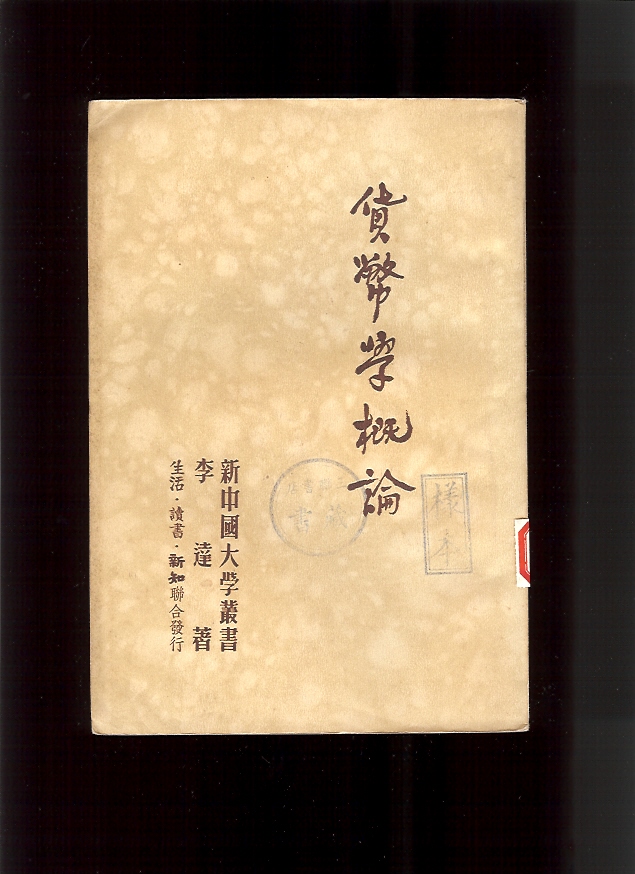 貨幣學概論
新中國大学叢書
李達著
生活·讀書·新知聯合發行
樣本